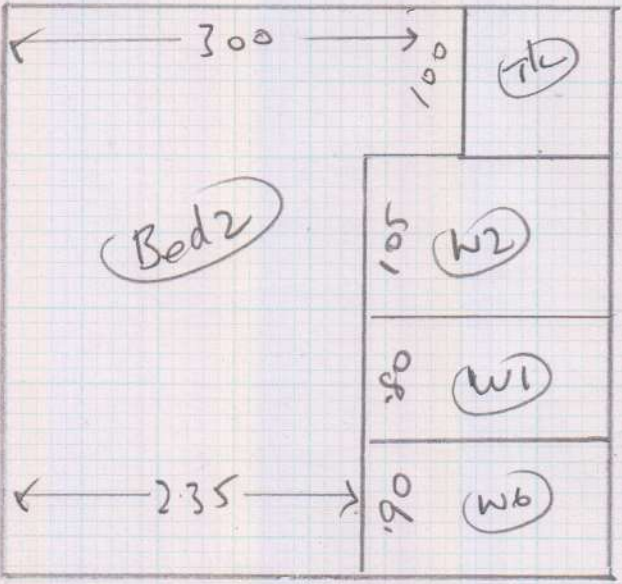 300
100
Bed2
105
W2
.80
W1
2.35
.90
W6